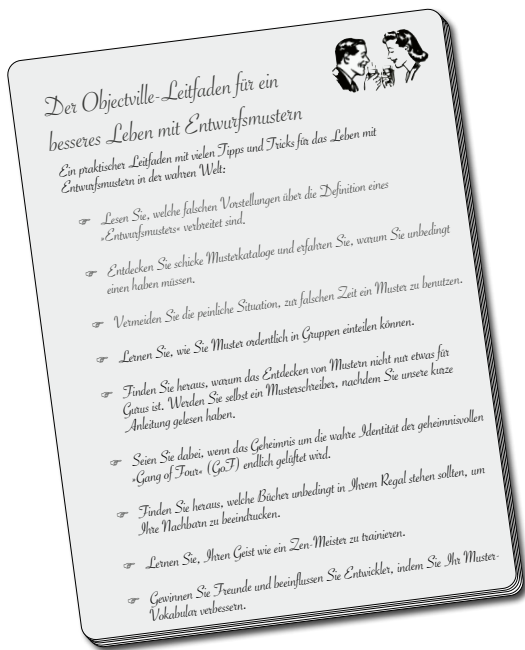 Der Objectville-Leitfaden für ein
besseres Leben mit Entwurfsmustern
Ein praktischer Leitfaden mit vielen Tipps und Tricks für das Leben mit
Entwurfsmustern in der wahren Welt:
☞ Lesen Sie, welche falschen Vorstellungen über die Definition eines
»Entwurfsmusters« verbreitet sind.
☞ Entdecken Sie schicke Musterkataloge und erfahren Sie, warum Sie unbedingt
einen haben müssen.
☞ Vermeiden Sie die peinliche Situation, zur falschen Zeit ein Muster zu benutzen.
☞ Lernen Sie, wie Sie Muster ordentlich in Gruppen einteilen können.
☞ Finden Sie heraus, warum das Entdecken von Mustern nicht nur etwas für
Gurus ist. Werden Sie selbst ein Musterschreiber, nachdem Sie unsere kurze
Anleitung gelesen haben.
☞ Seien Sie dabei, wenn das Geheimnis um die wahre Identität der geheimnisvollen
»Gang of Four« (GoF) endlich gelüftet wird.
☞ Finden Sie heraus, welche Bücher unbedingt in Ihrem Regal stehen sollten, um
Ihre Nachbarn zu beeindrucken.
☞ Lernen Sie, Ihren Geist wie ein Zen-Meister zu trainieren.
☞ Gewinnen Sie Freunde und beeinflussen Sie Entwickler, indem Sie Ihr Muster-
Vokabular verbessern.